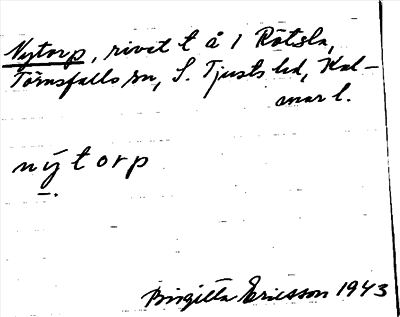 Nytorp, rivet t å 1 Rötsla,
Törnsfalls sn, S. Tjusts hd, Kal-
mar l.
nýtorp
Birgitta Ericsson 1943